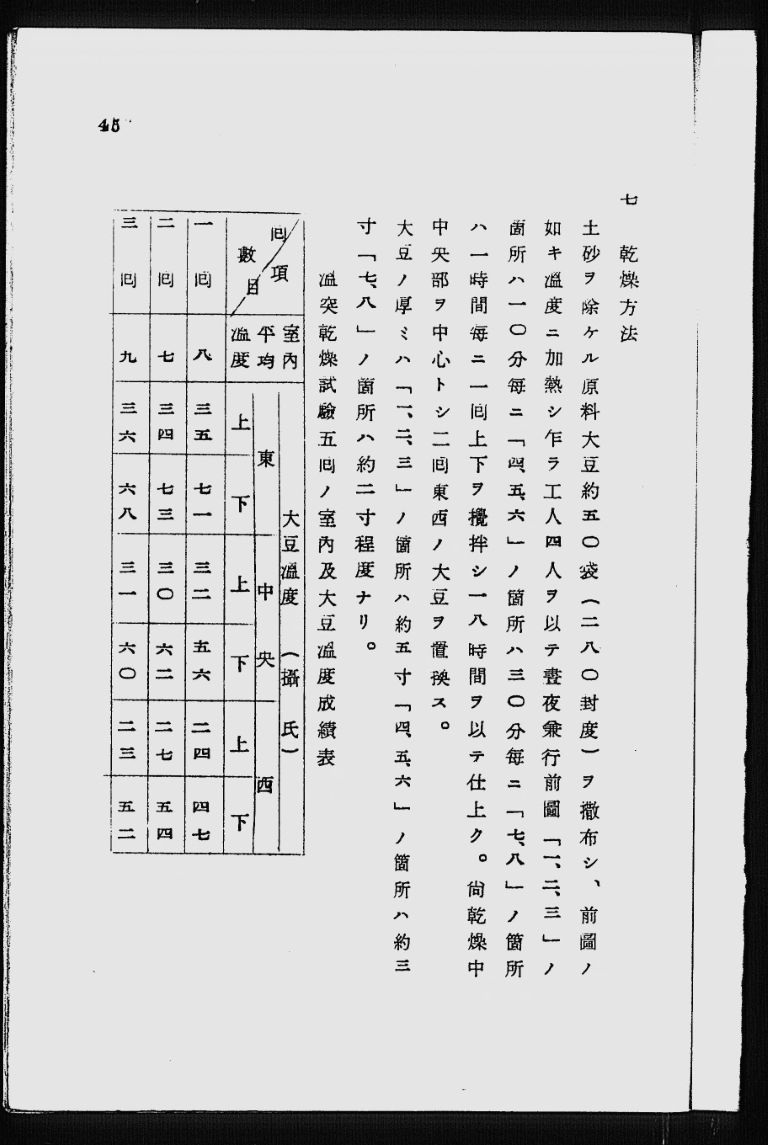 45
七 乾燥方法
土砂ヲ除ケル原料大豆約五〇袋(二八〇封度)ヲ撒布シ、前圖ノ
如キ溫度ニ加熱シ乍ラ工人四人ヲ以テ晝夜兼行前圖「一、二、三」ノ
箇所ハ一〇分每ニ「四、五、六」ノ箇所ハ三〇分每ニ「七、八」ノ箇所
ハ一時間每ニ一囘上下ヲ攪拌シ一八時間ヲ以テ仕上ク。尙乾燥中
中央部ヲ中心トシ二囘東西ノ大豆ヲ置換ス。
大豆ノ厚ミハ「一、二、三」ノ箇所ハ約五寸「四、五、六」ノ箇所ハ約三
寸「七、八」ノ箇所ハ約二寸程度ナリ。
溫突乾燥試驗五囘ノ室內及大豆溫度成績表
項目 囘數
室內平均溫度
大豆溫度(攝氏)
東 中央 西
上 下 上 下 上 下
一囘 八 三五 七一 三二 五六 二四 四七
二囘 七 三四 七三 三〇 六二 二七 五四
三囘 九 三六 六八 三一 六〇 二三 五二